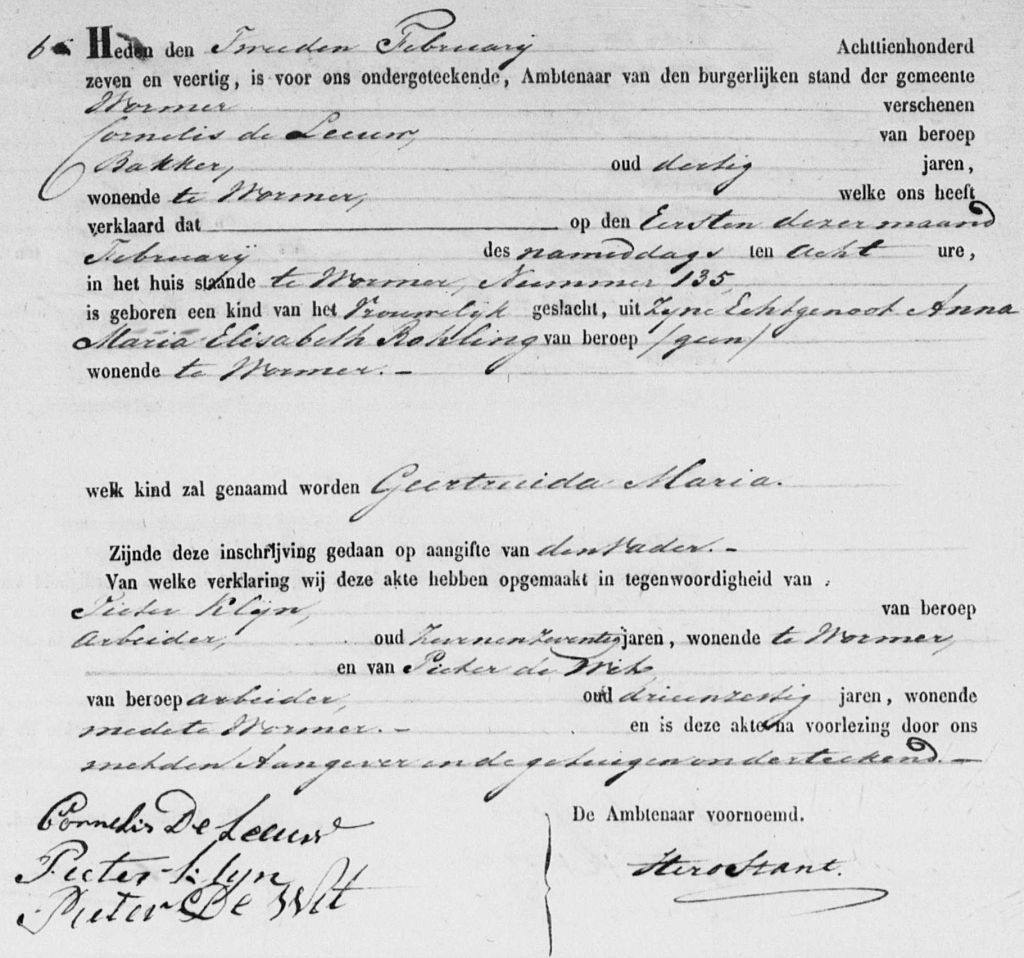 6 Heden den Tweeden February Achttienhonderd
zeven en veertig, is voor ons ondergeteekende, Ambtenaar van den burgerlijken stand der gemeente
Wormer verschenen
Cornelis de Leeuw, van beroep
Bakker, oud dertig jaren,
wonende te Wormer, welke ons heeft
verklaard dat op den Eersten dezer maand
February des namiddags ten acht ure,
in het huis staande te Wormer, Nummer 135,
is geboren een kind van het Vrouwelijk geslacht, uit Zyne Echtgenoot Anna
Maria Elisabeth Rohling van beroep /geen/
wonende te Wormer. -
welk kind zal genaamd worden Geertruida Maria.
Zijnde deze inschrijving gedaan op aangifte van den Vader. -
Van welke verklaring wij deze akte hebben opgemaakt in tegenwoordigheid van
Pieter Klyn, van beroep
arbeider, oud jaren, wonende te Wormer,
en van Pieter de Wit,
van beroep arbeider, oud drieenzestig jaren, wonende
mede te Wormer. - en is deze akte na voorlezing door ons
met den Aangever en de getuigen onderteekend. -
Cornelis De Leeuw
De Ambtenaar voornoemd.
Pieter Klyn
Pieter De Wit